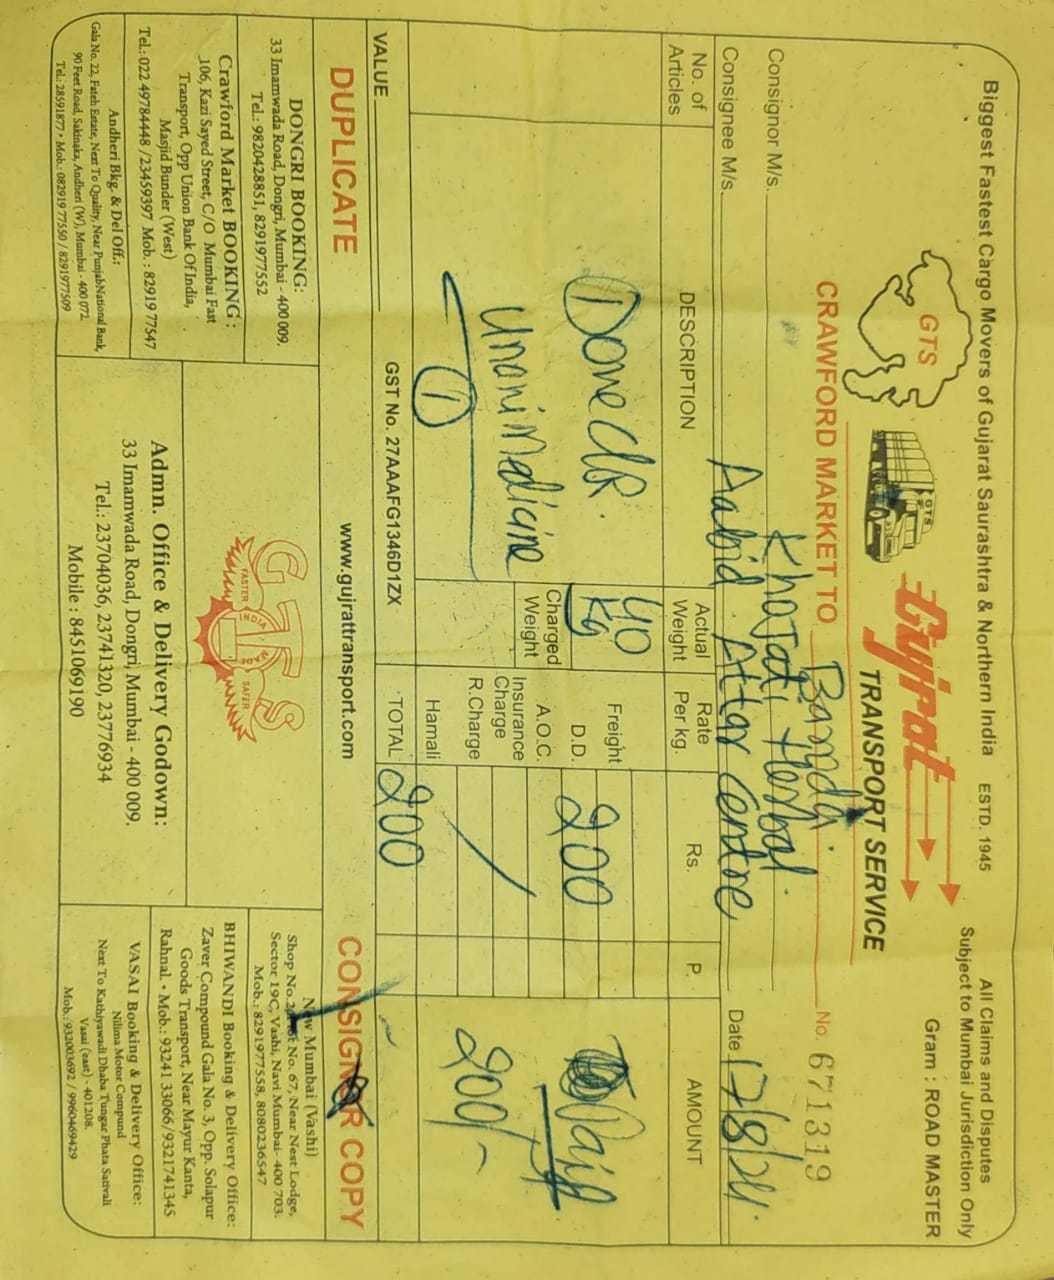 Biggest Fastest Cargo Movers of Gujarat Saurashtra & Northern India ESTD. 1945
All Claims and Disputes
Subject to Mumbai Jurisdiction Only
Gram : ROAD MASTER
GTS
GTS
Gujrat
TRANSPORT SERVICE
CRAWFORD MARKET TO
No. 671319
Consignor M/s. Khojati Herbal.
Consignee M/s. Aabid Attar Centre
Date 17/8/24.
No. of Articles
DESCRIPTION
Actual Weight
Rate Per kg.
Rs.
P.
AMOUNT
1
40 Kg
Unani Medicine
1
Charged Weight
Freight
D.D. 200
A.O.C.
Insurance Charge
R.Charge
Hamali
TOTAL 200
Paid
200/-
VALUE
GST No. 27AAAFG1346D1ZX
DUPLICATE
www.gujrattransport.com
CONSIGNOR COPY
DONGRI BOOKING:
33 Imamwada Road, Dongri, Mumbai - 400 009.
Tel.: 9820428851, 8291977552
Crawford Market BOOKING :
106, Kazi Sayed Street, C/O Mumbai Fast
Transport, Opp Union Bank Of India,
Masjid Bunder (West)
Tel.: 022 49784448 /23459397 Mob. : 82919 77547
Andheri Bkg. & Del Off.:
Gala No. 22, Fateh Estate, Next To Quality, Near PunjabNational Bank,
90 Feet Road, Sakinaka, Andheri (W), Mumbai - 400 072.
Tel.: 28591877 • Mob.: 082919 77550 / 8291977509
GTS
FASTER
INDIA
SAFER
Admn. Office & Delivery Godown:
33 Imamwada Road, Dongri, Mumbai - 400 009.
Tel.: 23704036, 23741320, 23776934
Mobile : 8451069190
New Mumbai (Vashi)
Shop No. No. 67, Near Nest Lodge,
Sector 19C, Vashi, Navi Mumbai- 400 703.
Mob.: 8291977558, 8080236547
BHIWANDI Booking & Delivery Office:
Zaver Compound Gala No. 3, Opp. Solapur
Goods Transport, Near Mayur Kanta,
Rahnal. • Mob.: 93241 33066/9321741345
VASAI Booking & Delivery Office:
Nilima Motor Compund
Next To Kathiyawadi Dhaba Tungar Phata Sativali
Vasai (east) - 401208.
Mob.: 932003692 / 9960469429